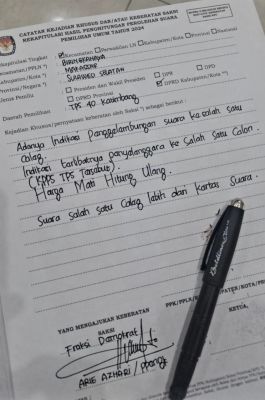 CATATAN KEJADIAN KHUSUS DAN/ATAU KEBERATAN SAKSI
REKAPITULASI HASIL PENGHITUNGAN PEROLEHAN SUARA
PEMILIHAN UMUM TAHUN 2024
Rekapitulasi Tingkat : Kecamatan Perwakilan LN Kabupaten/Kota Provinsi Nasional
Kecamatan
Kabupaten/Kota *)
Provinsi/Negara *) SULAWESI SELATAN
Jenis Pemilu : Presiden dan Wakil Presiden DPR DPD
DPRD Provinsi DPRD Kabupaten/Kota *)
Daerah Pemilihan : TPS 40
Kejadian Khusus/pernyataan keberatan oleh Saksi *) sebagai berikut :
Adanya Indikasi Penggelambungan suara kesalah satu
Caleg.
Indikasi terlibatnya penyelanggara ke Salah satu Calon.
(KPPS TPS Tersebut)
Harga Mati Hitung Ulang.
Suara salah satu Caleg lebih dari kertas Suara.
YANG MENGAJUKAN KEBERATAN
SAKSI
KETUA,
Fraksi Demokrat
ARIE AZHARI /